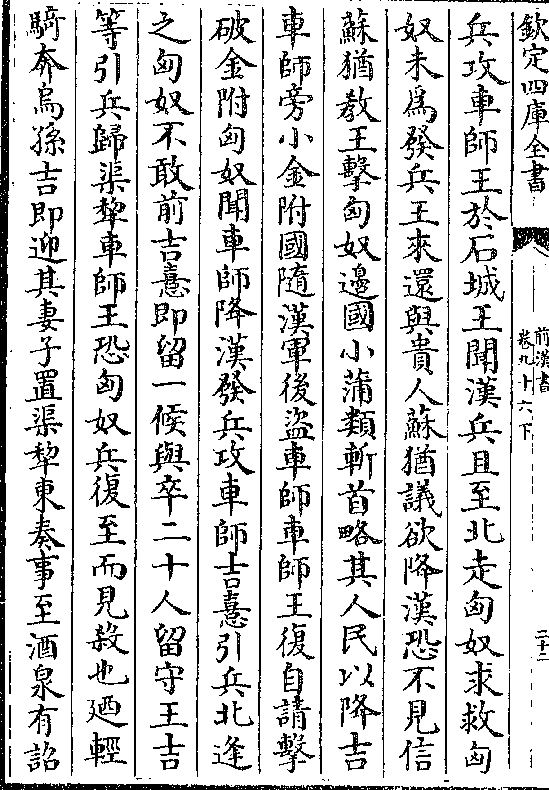 欽定四庫全書
前漢書
卷九十六下
二十二
兵攻車師王於石城王聞漢兵且至北走匈奴求救匈
奴未為發兵王來還與貴人蘇猶議欲降漢恐不見信
蘇猶教王擊匈奴邊國小蒲類斬首略其人民以降吉
車師旁小金附國隨漢軍後盜車師車師王復自請擊
破金附匈奴聞車師降漢發兵攻車師吉憙引兵北逢
之匈奴不敢前吉憙即留一候與卒二十人留守王吉
等引兵歸渠犂車師王恐匈奴兵復至而見殺也廼輕
騎奔烏孫吉即迎其妻子置渠犂東奏事至酒泉有詔